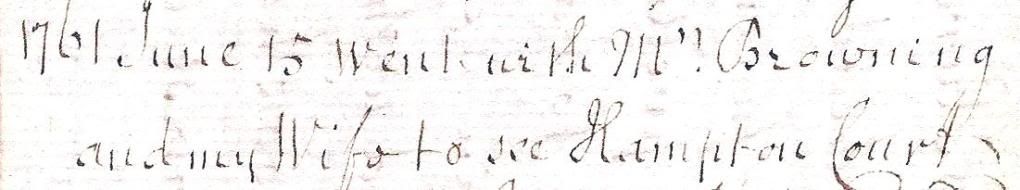 1761 June 15 Went with Mrs. Browning
and my Wife to see Hampton Court